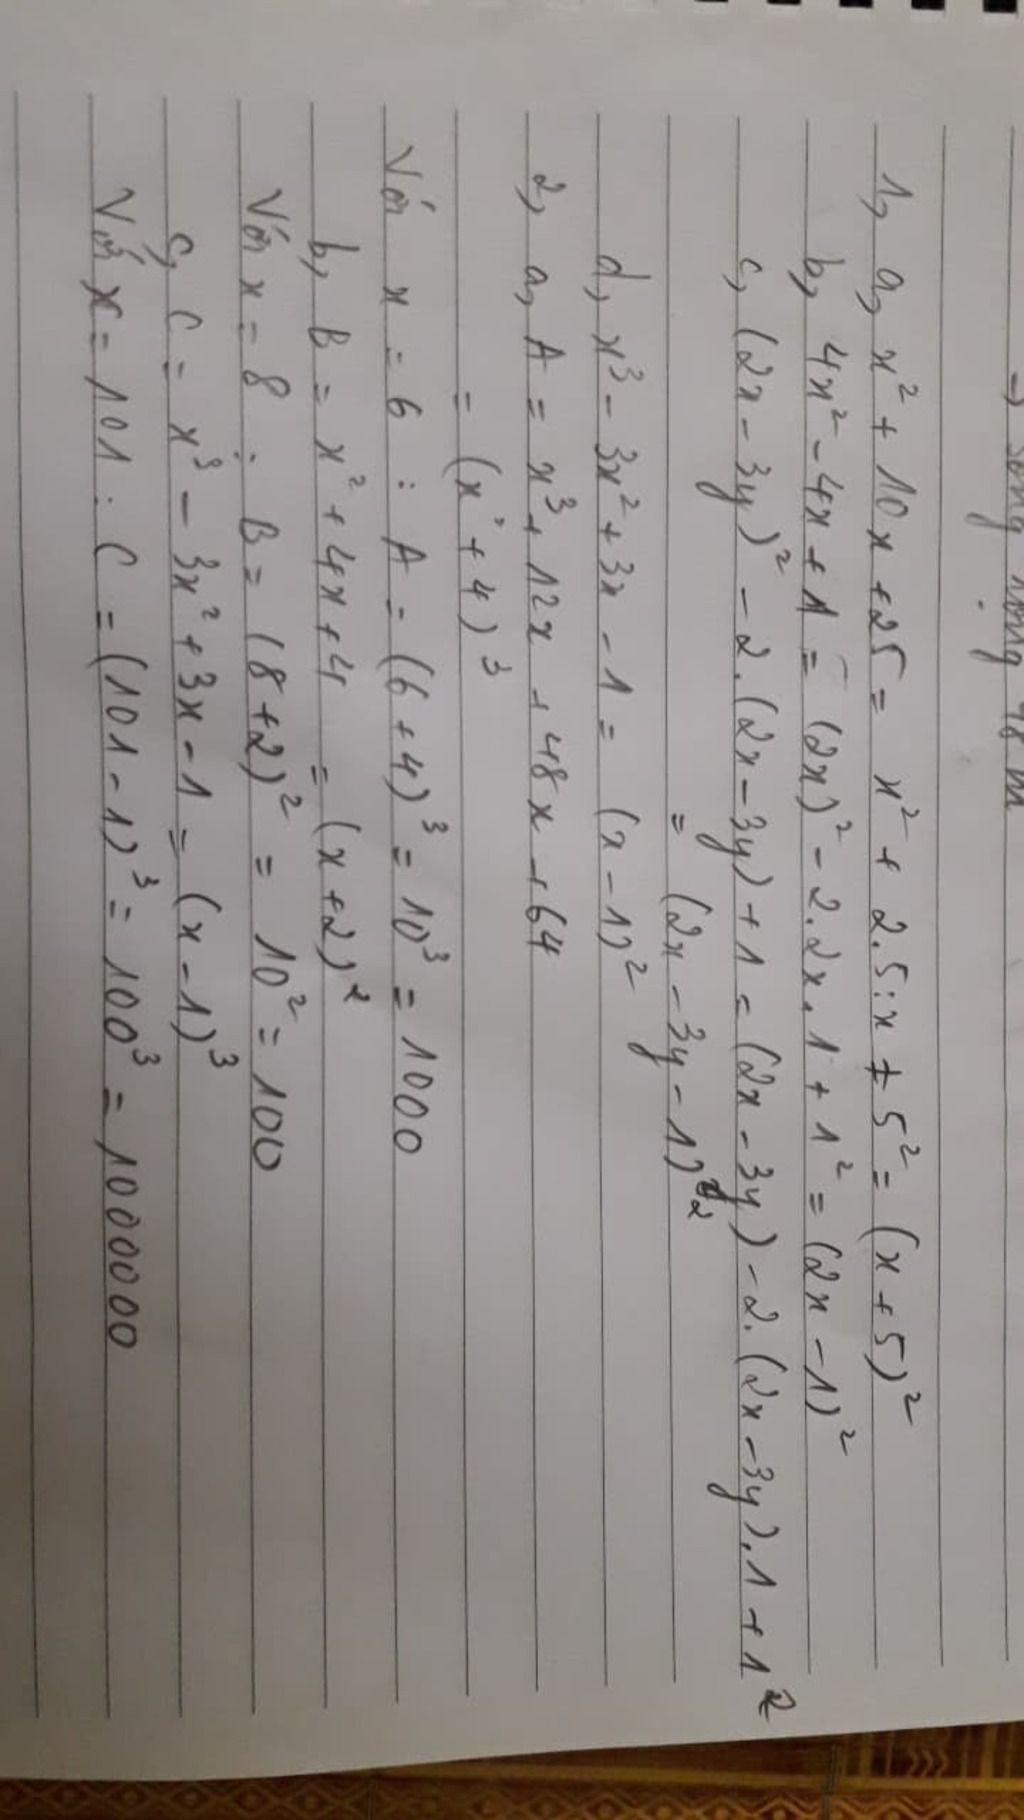 → sông rộng 48 m
1, a, x² + 10x + 25 = x² + 2.5.x + 5² = (x + 5)²
b, 4x² - 4x + 1 = (2x)² - 2.2x.1 + 1² = (2x - 1)²
c, (2x - 3y)² - 2.(2x - 3y) + 1 = (2x - 3y) - 2.(2x - 3y).1 + 1²
= (2x - 3y - 1)²
d, x³ - 3x² + 3x - 1 = (x - 1)²
2, a, A = x³ + 12x + 48x + 64
= (x + 4)³
Với x = 6 : A = (6 + 4)³ = 10³ = 1000
b, B = x² + 4x + 4 = (x + 2)²
Với x = 8 : B = (8 + 2)² = 10² = 100
c, C = x³ - 3x² + 3x - 1 = (x - 1)³
Với x = 101 : C = (101 - 1)³ = 100³ = 1000000